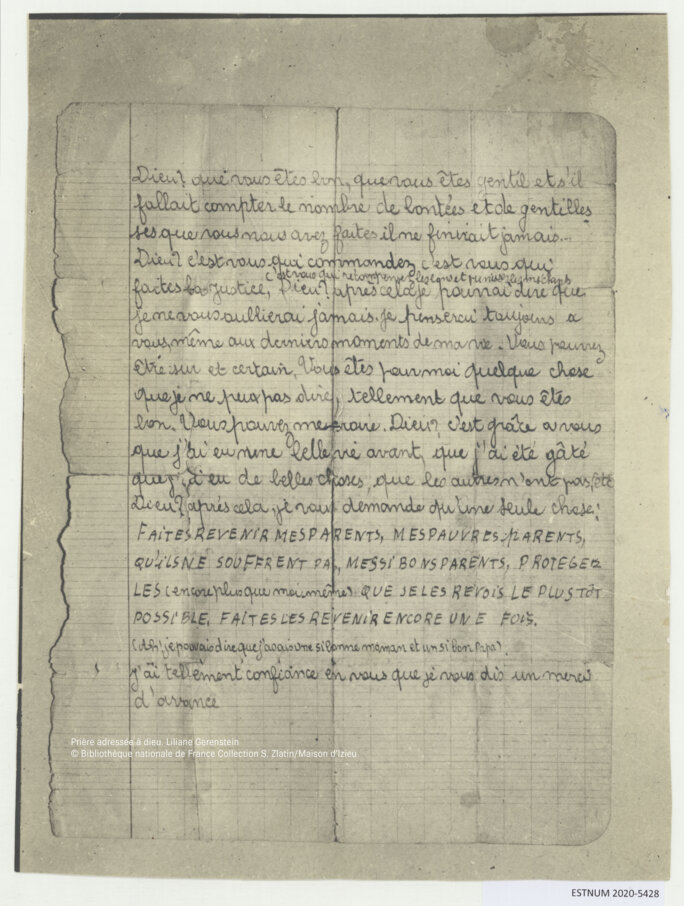 Dieu? que vous êtes bon, que vous êtes gentil et s'il
fallait compter le nombre de bontées et de gentilles
ses que vous nous avez faites il ne finirait jamais...
Dieu? c'est vous qui commandez c'est vous qui
c'est vous qui recompensez les bons et punissez les méchants
faites la justice, Dieu? après cela je pourrai dire que
je ne vous oublierai jamais. Je penserai toujours a
vous, même aux derniers moments de ma vie. Vous pouvez
être sur et certain, Vous êtes pour moi quelque chose
que je ne puis pas dire, tellement que vous êtes
bon. Vous pouvez me croire. Dieu? c'est grâte a vous
que j'ai eu une belle vie avant, que j'ai été gâté
que j'ai eu de belles choses, que les autres n'ont pas, été
Dieu? après cela, je vous demande qu'une seule chose:
FAITES REVENIR MES PARENTS, MES PAUVRES PARENTS,
QU'ILS NE SOUFFRENT PAS, MES SI BONS PARENTS, PROTEGEZ
LES (encore plus que moi même) QUE JE LES REVOIS LE PLUS TÔT
POSSIBLE, FAITES LES REVENIR ENCORE UNE FOIS.
(Ah! je pouvais dire que j'avais une si bonne maman et un si bon Papa).
j'ai tellement confiance en vous que je vous dis un merci
d'avance
Prière adressée à dieu. Liliane Gerenstein
© Bibliothèque nationale de France Collection S. Zlatin/Maison d'Izieu
ESTNUM 2020-5428